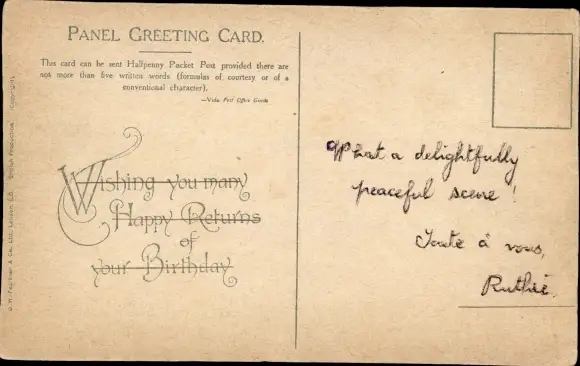 PANEL GREETING CARD.
This card can be sent Halfpenny Packet Post provided there are
not more than five written words (formulas of courtesy or of a
conventional character).
—Vide Post Office Guide
Wishing you many
Happy Returns
of
your Birthday
What a delightfully
peaceful scene!
Toute à vous,
Ruthie.
C. W. Faulkner & Co. Ltd. London, E.C. British Production. Copyright.